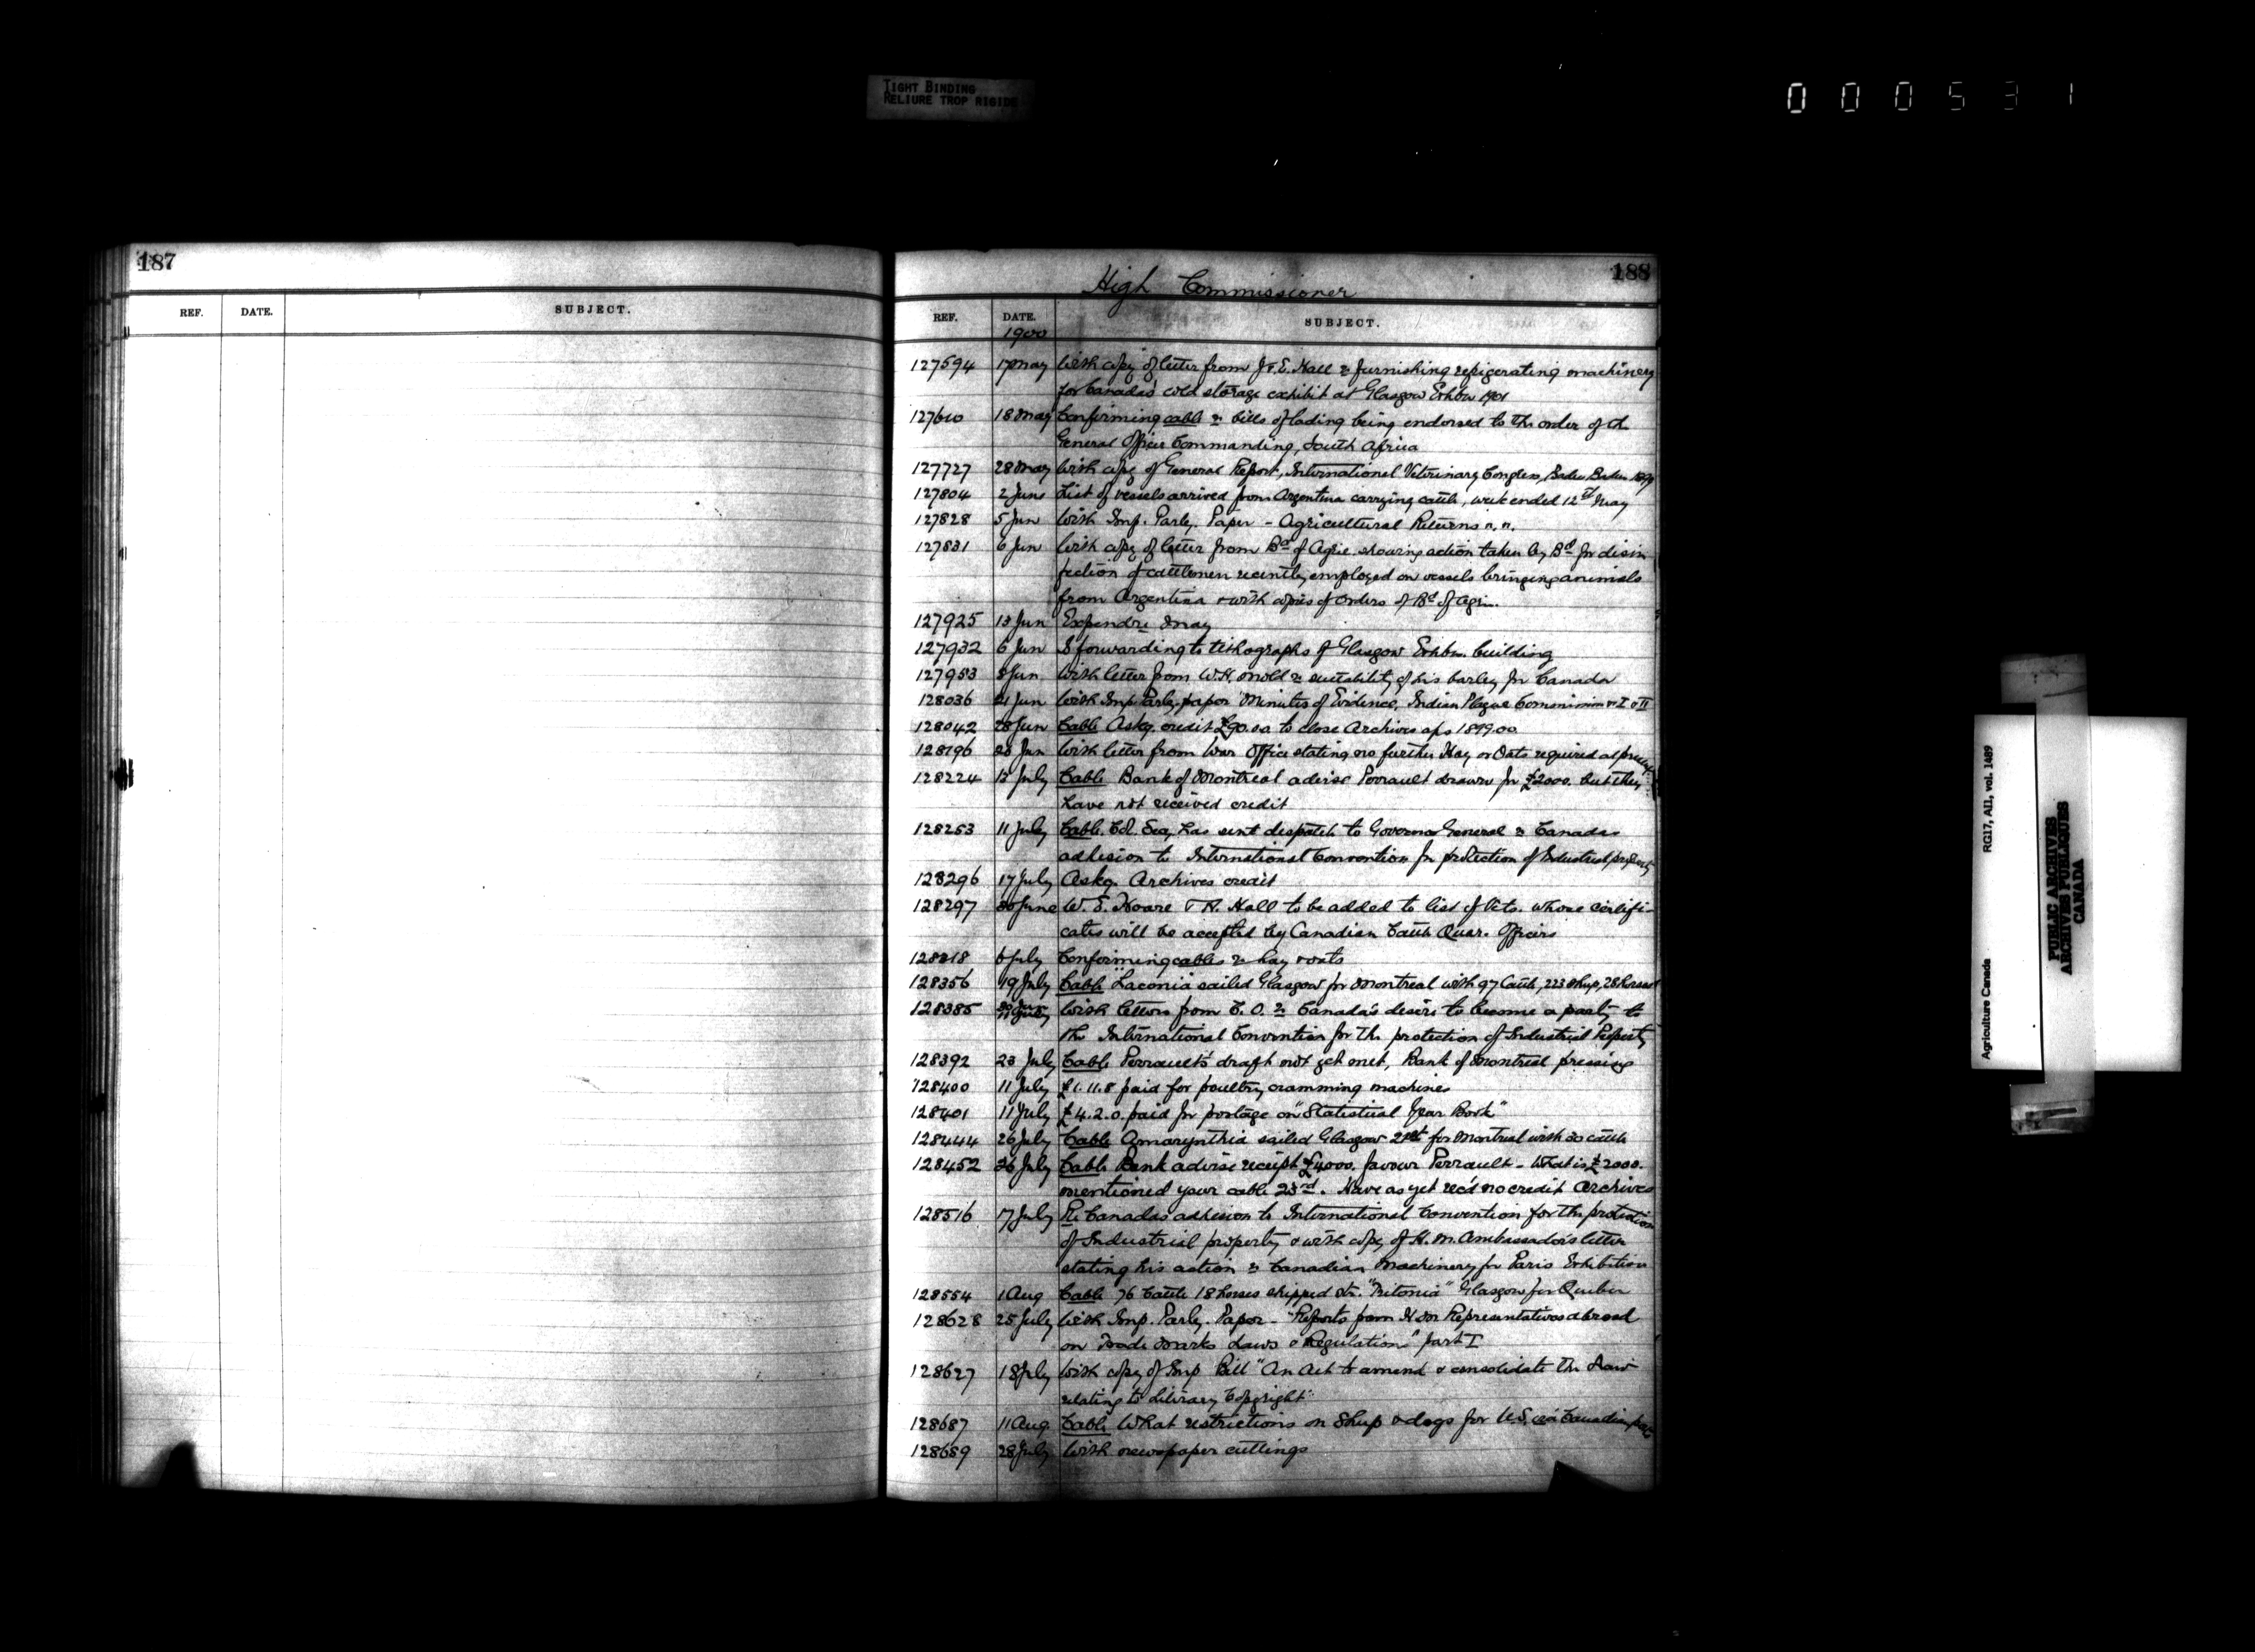 TIGHT BINDING
RELIURE TROP RIGIDE
000531
187
REF. DATE. SUBJECT.
188
High Commissioner
REF. DATE. SUBJECT.
1900
127594 17 May With copy of letter from J & E. Hall re furnishing refrigerating machinery
for Canada's cold storage exhibit at Glasgow Exhbn 1901
127610 18 May Confirming cable re bills of lading being endorsed to the order of the
General Officer Commanding, South Africa
127727 28 May With copy of General Report, International Veterinary Congress, Baden Baden 1899
127804 2 June List of vessels arrived from Argentina carrying cattle, week ended 12th May
127828 5 Jun With Imp. Parly. Paper - Agricultural Returns
127831 6 Jun With copy of letter from Bd of Agric. showing action taken by Bd for disin
fection of cattlemen recently employed on vessels bringing animals
from Argentina & with copies of Orders of Bd of Agri.
127925 13 Jun Expendre May
127932 6 Jun forwarding lithographs of Glasgow Exhbn. building
127953 8 Jun With letter from W.H. Mold re suitability of his barley for Canada
128036 21 Jun With Imp Parly. paper "Minutes of Evidence, Indian Plague Commission I & II
128042 28 Jun Cable Askg. credit £90.00 to close Archives a/cs 1899.00
128196 Jun With letter from War Office stating no further Hay or Oats required at present
128224 13 July Cable Bank of Montreal advise Perrault drawn for £2000. but they
have not received credit
128253 11 July Cable. Col. Secy has sent despatch to Governor General re Canada's
adhesion to International Convention for protection of Industrial property
128296 17 July Askg. Archives credit
128297 30 June W. E. Hoare & R. Hall to be added to list of Vets. whose certifi-
cates will be accepted by Canadian Cattle Quar. Officers
128318 6 July Confirming cables re hay & oats
128356 19 July Cable "Laconia sailed Glasgow for Montreal with 97 Cattle, 223 Sheep, 28 horses
128385 With letters from C. O. re Canada's desire to become a party to
the International Convention for the protection of Industrial Property
128392 23 July Cable Perrault's draft not yet met, Bank of Montreal pressing
128400 11 July £1.11.8 paid for poultry cramming machines
128401 11 July £4.2.0. paid for postage on "Statistical Year Book"
128444 26 July Cable Amarynthia sailed Glasgow 21st for Montreal with 30 cattle
128452 26 July Cable Bank advise receipt £4000. favour Perrault - What is £2000.
mentioned your cable 23rd. Have as yet rec'd no credit Archives
128516 17 July Re Canada's adhesion to International Convention for the protection
of Industrial property & with copy of H. M. Ambassador's letter
stating his action re Canadian Machinery for Paris Exhibition
128554 1 Aug Cable 76 Cattle 18 horses shipped str. "Tritonia" Glasgow for Quebec
128628 25 July With Imp. Parly. Paper - "Reports from H M Representatives abroad
on Trade Marks Laws & Regulations" part I
128627 18 July With copy of Imp Bill "An Act to amend & consolidate the Law
relating to Literary Copyright"
128687 11 Aug Cable What restrictions on Sheep & dogs for U.S. via Canadian ports
128689 28 July With newspaper cuttings
Agriculture Canada RG17, AII, vol. 1489
PUBLIC ARCHIVES
ARCHIVES PUBLIQUES
CANADA